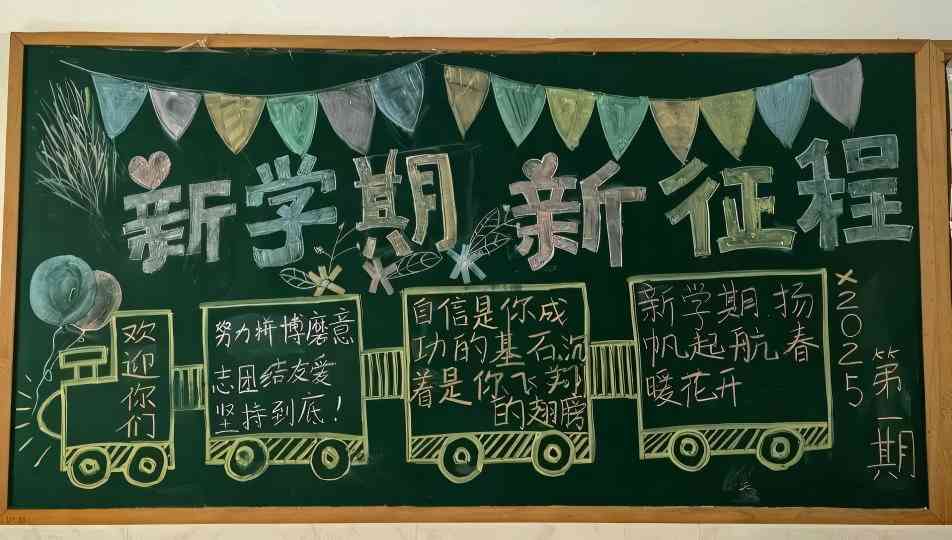 新学期 新征程
欢迎你们
努力拼博磨意
志团结友爱
坚持到底！
自信是你成
功的基石沉
着是你飞翔
的翅膀
新学期 扬
帆起航 春
暖花开
2025
第一期